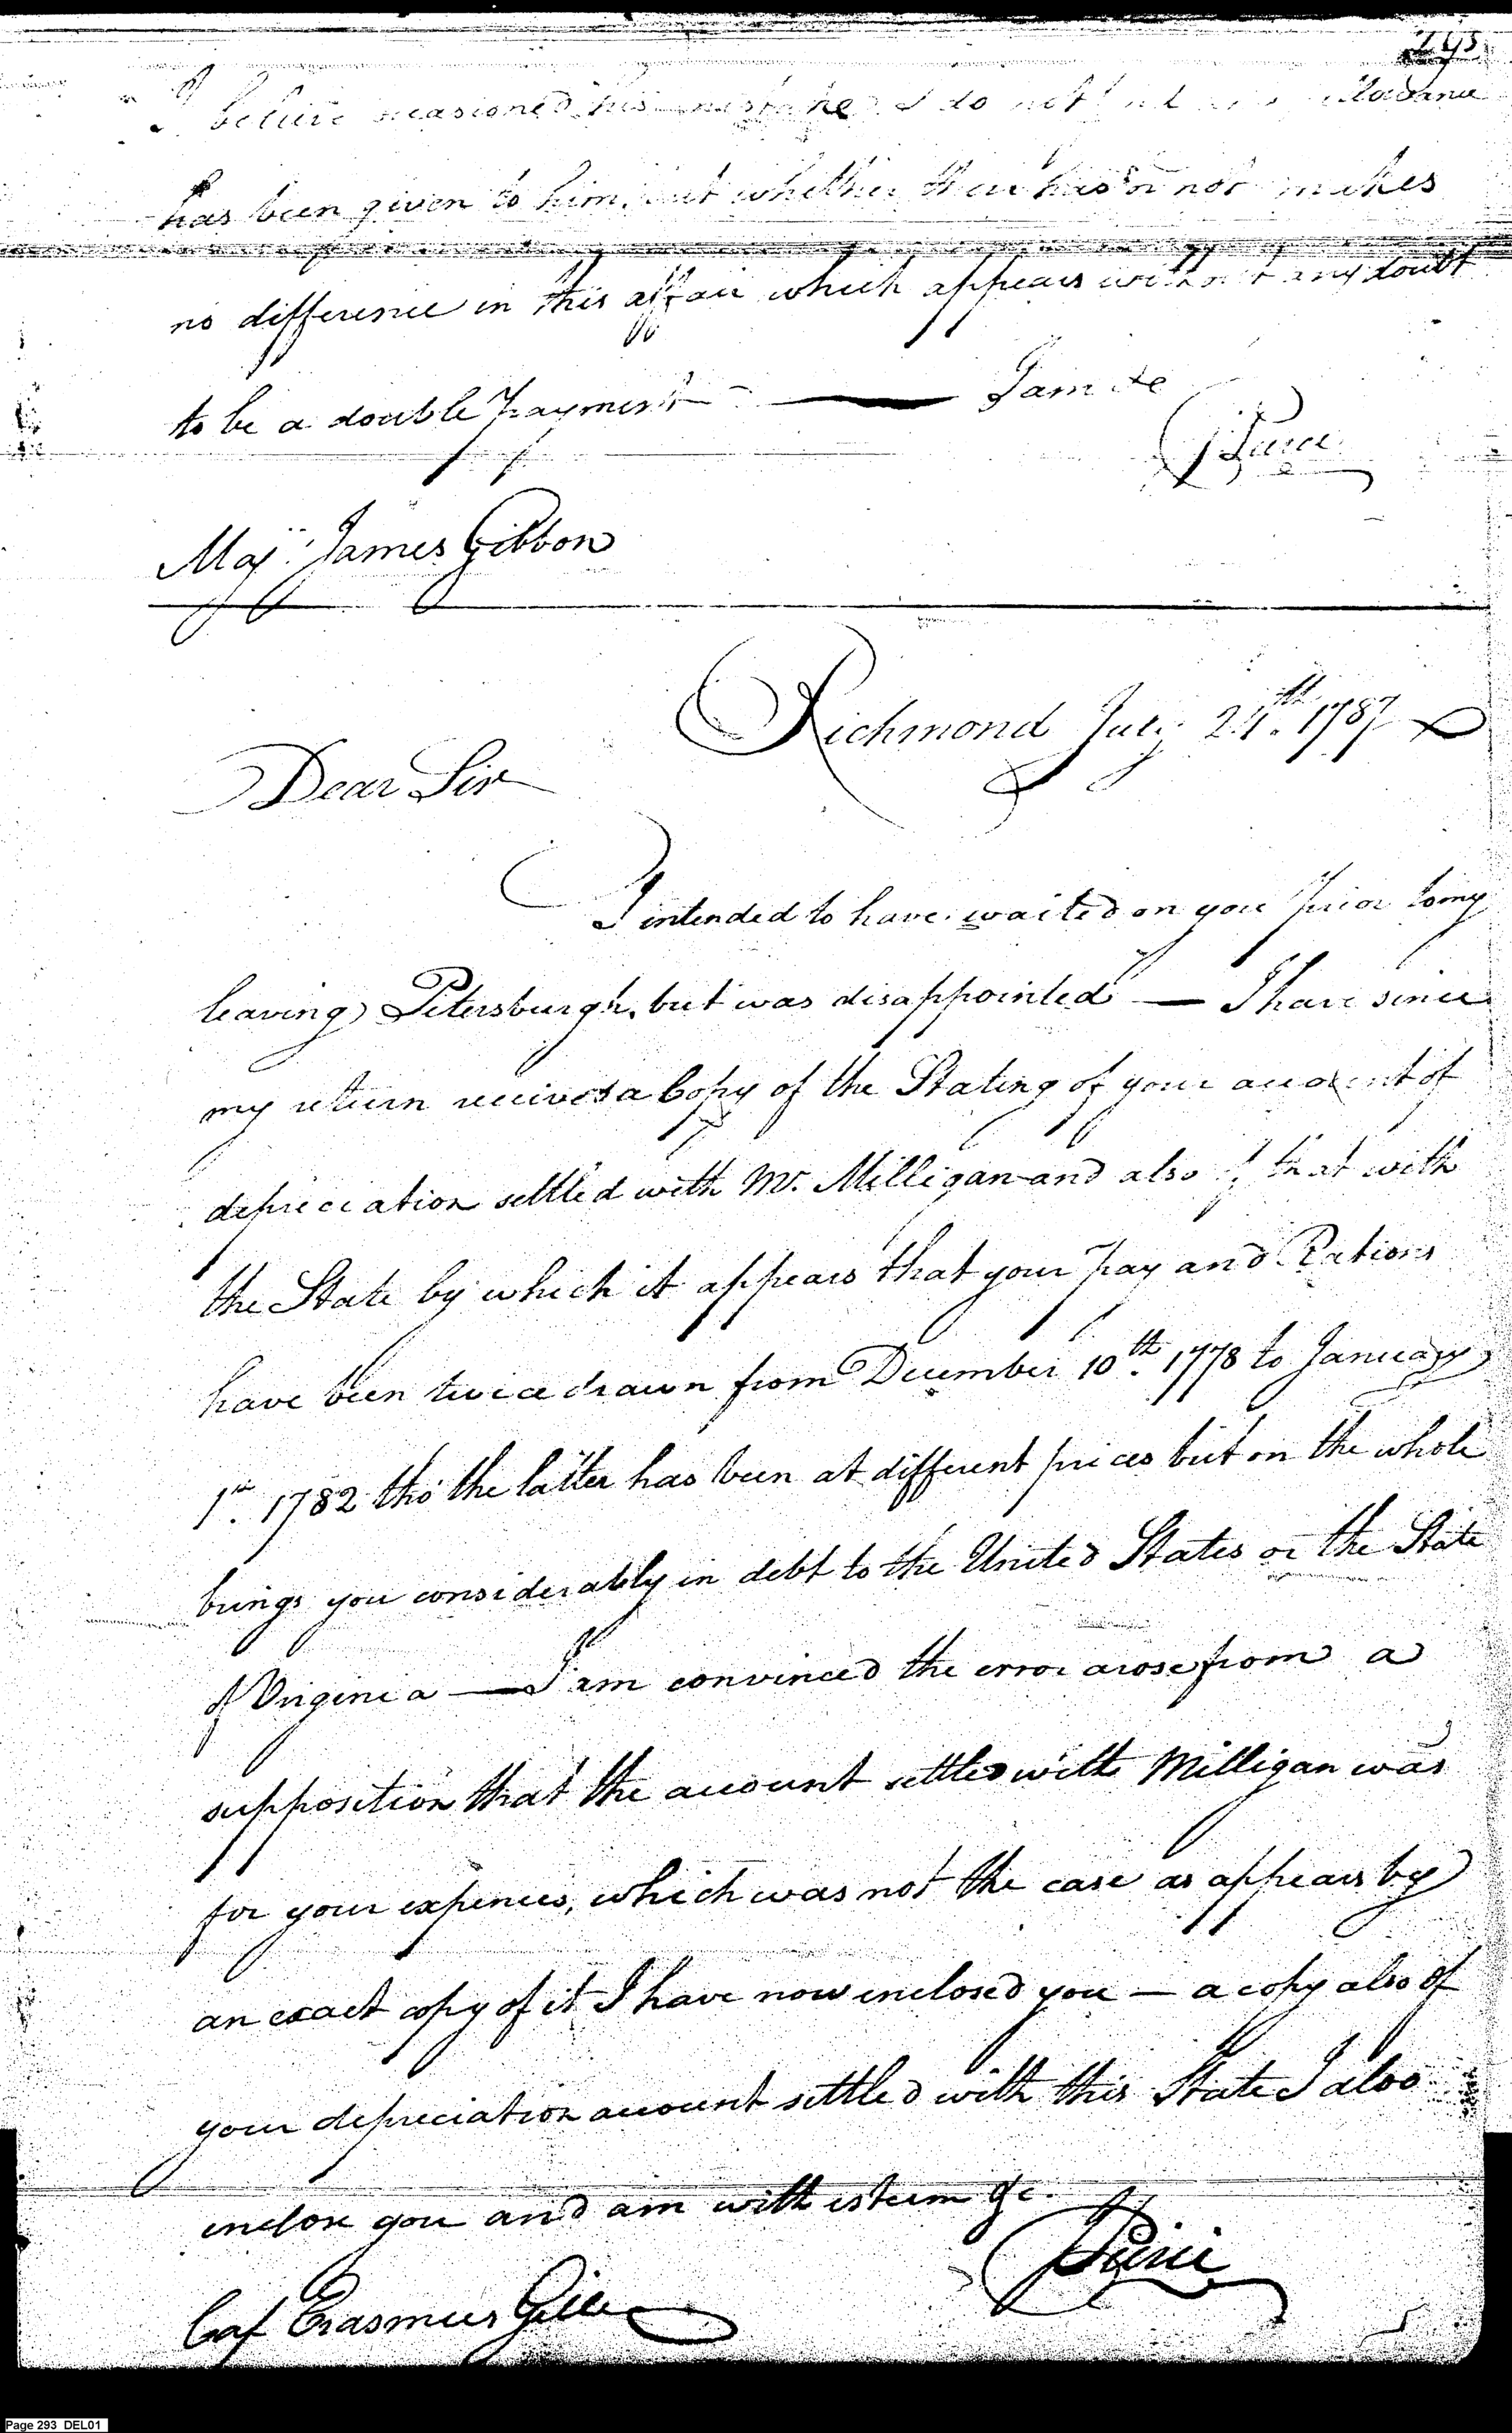 I believe occasioned his mistake I do not
has been given to him, but whether there has or not makes
no difference in this affair which appears without any doubt
to be a double payment — I am &c
Pierce
Maj. James Gibbon
Richmond July 24th. 1787
Dear Sir
I intended to have waited on you prior to my
leaving Petersburgh, but was disappointed — I have since
my return received a Copy of the Stating of your account of
depreciation settled with Mr. Milligan and also of that with
the State by which it appears that your pay and Rations
have been twice drawn from December 10th. 1778 to January
1st. 1782 tho' the latter has been at different prices but on the whole
brings you considerably in debt to the United States or the State
of Virginia — I am convinced the error arose from a
supposition that the account settled with Milligan was
for your expences, which was not the case as appears by
an exact copy of it I have now inclosed you — a copy also of
your depreciation account settled with this State I also
inclose you and am with esteem &c.
Pierce
Cap Erasmus Gill
Page 293 DEL01